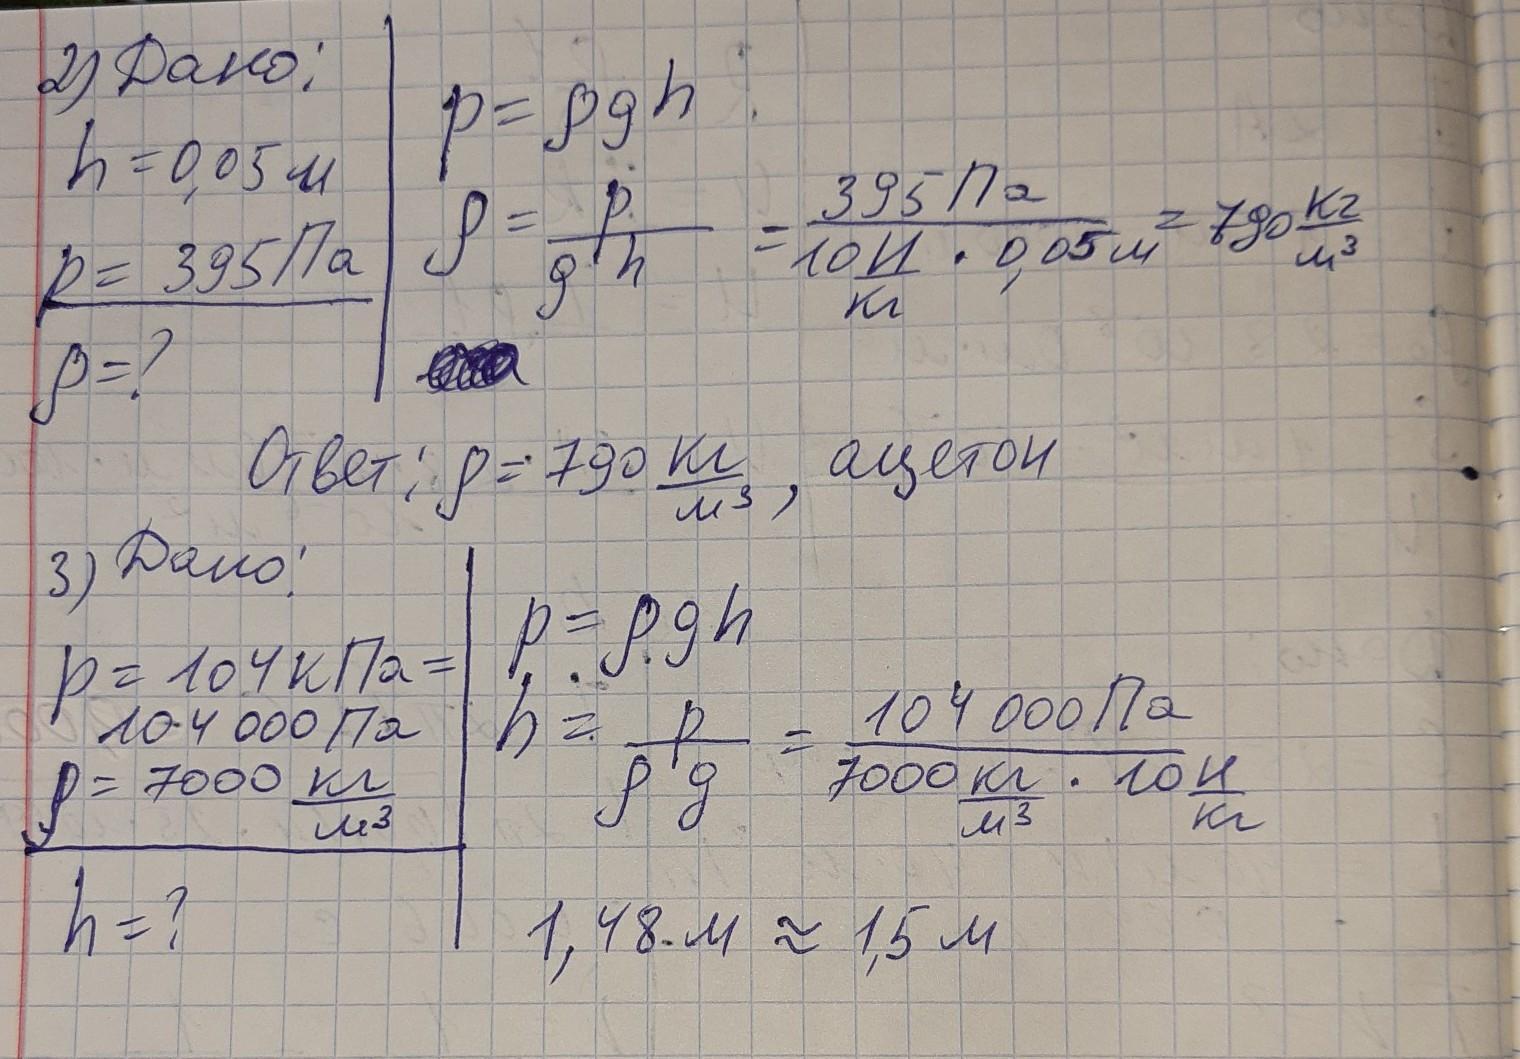 2) Дано:
h = 0,05 м
p = 395 Па
ρ = ?
p = ρgh
ρ = p / gh = 395 Па / 10 Н/кг · 0,05 м = 790 кг/м³
Ответ: ρ = 790 кг/м³, ацетон
3) Дано:
p = 104 кПа =
104 000 Па
ρ = 7000 кг/м³
h = ?
p = ρgh
h = p / ρg = 104 000 Па / 7000 кг/м³ · 10 Н/кг
1,48 м ≈ 1,5 м